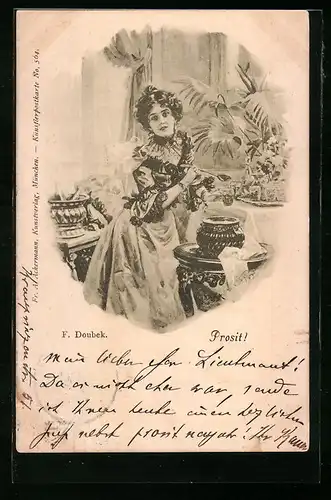 Prosit!
Fr. A. Ackermann, Kunstverlag, München. — Künstlerpostkarte No. 564.
F. Doubek.
Prosit!
Mein lieber Herr Lieutenant!
Da es nicht eher war, sende
ich Ihnen heute einen herzlichen
Gruß nebst prosit neujahr! Ihr